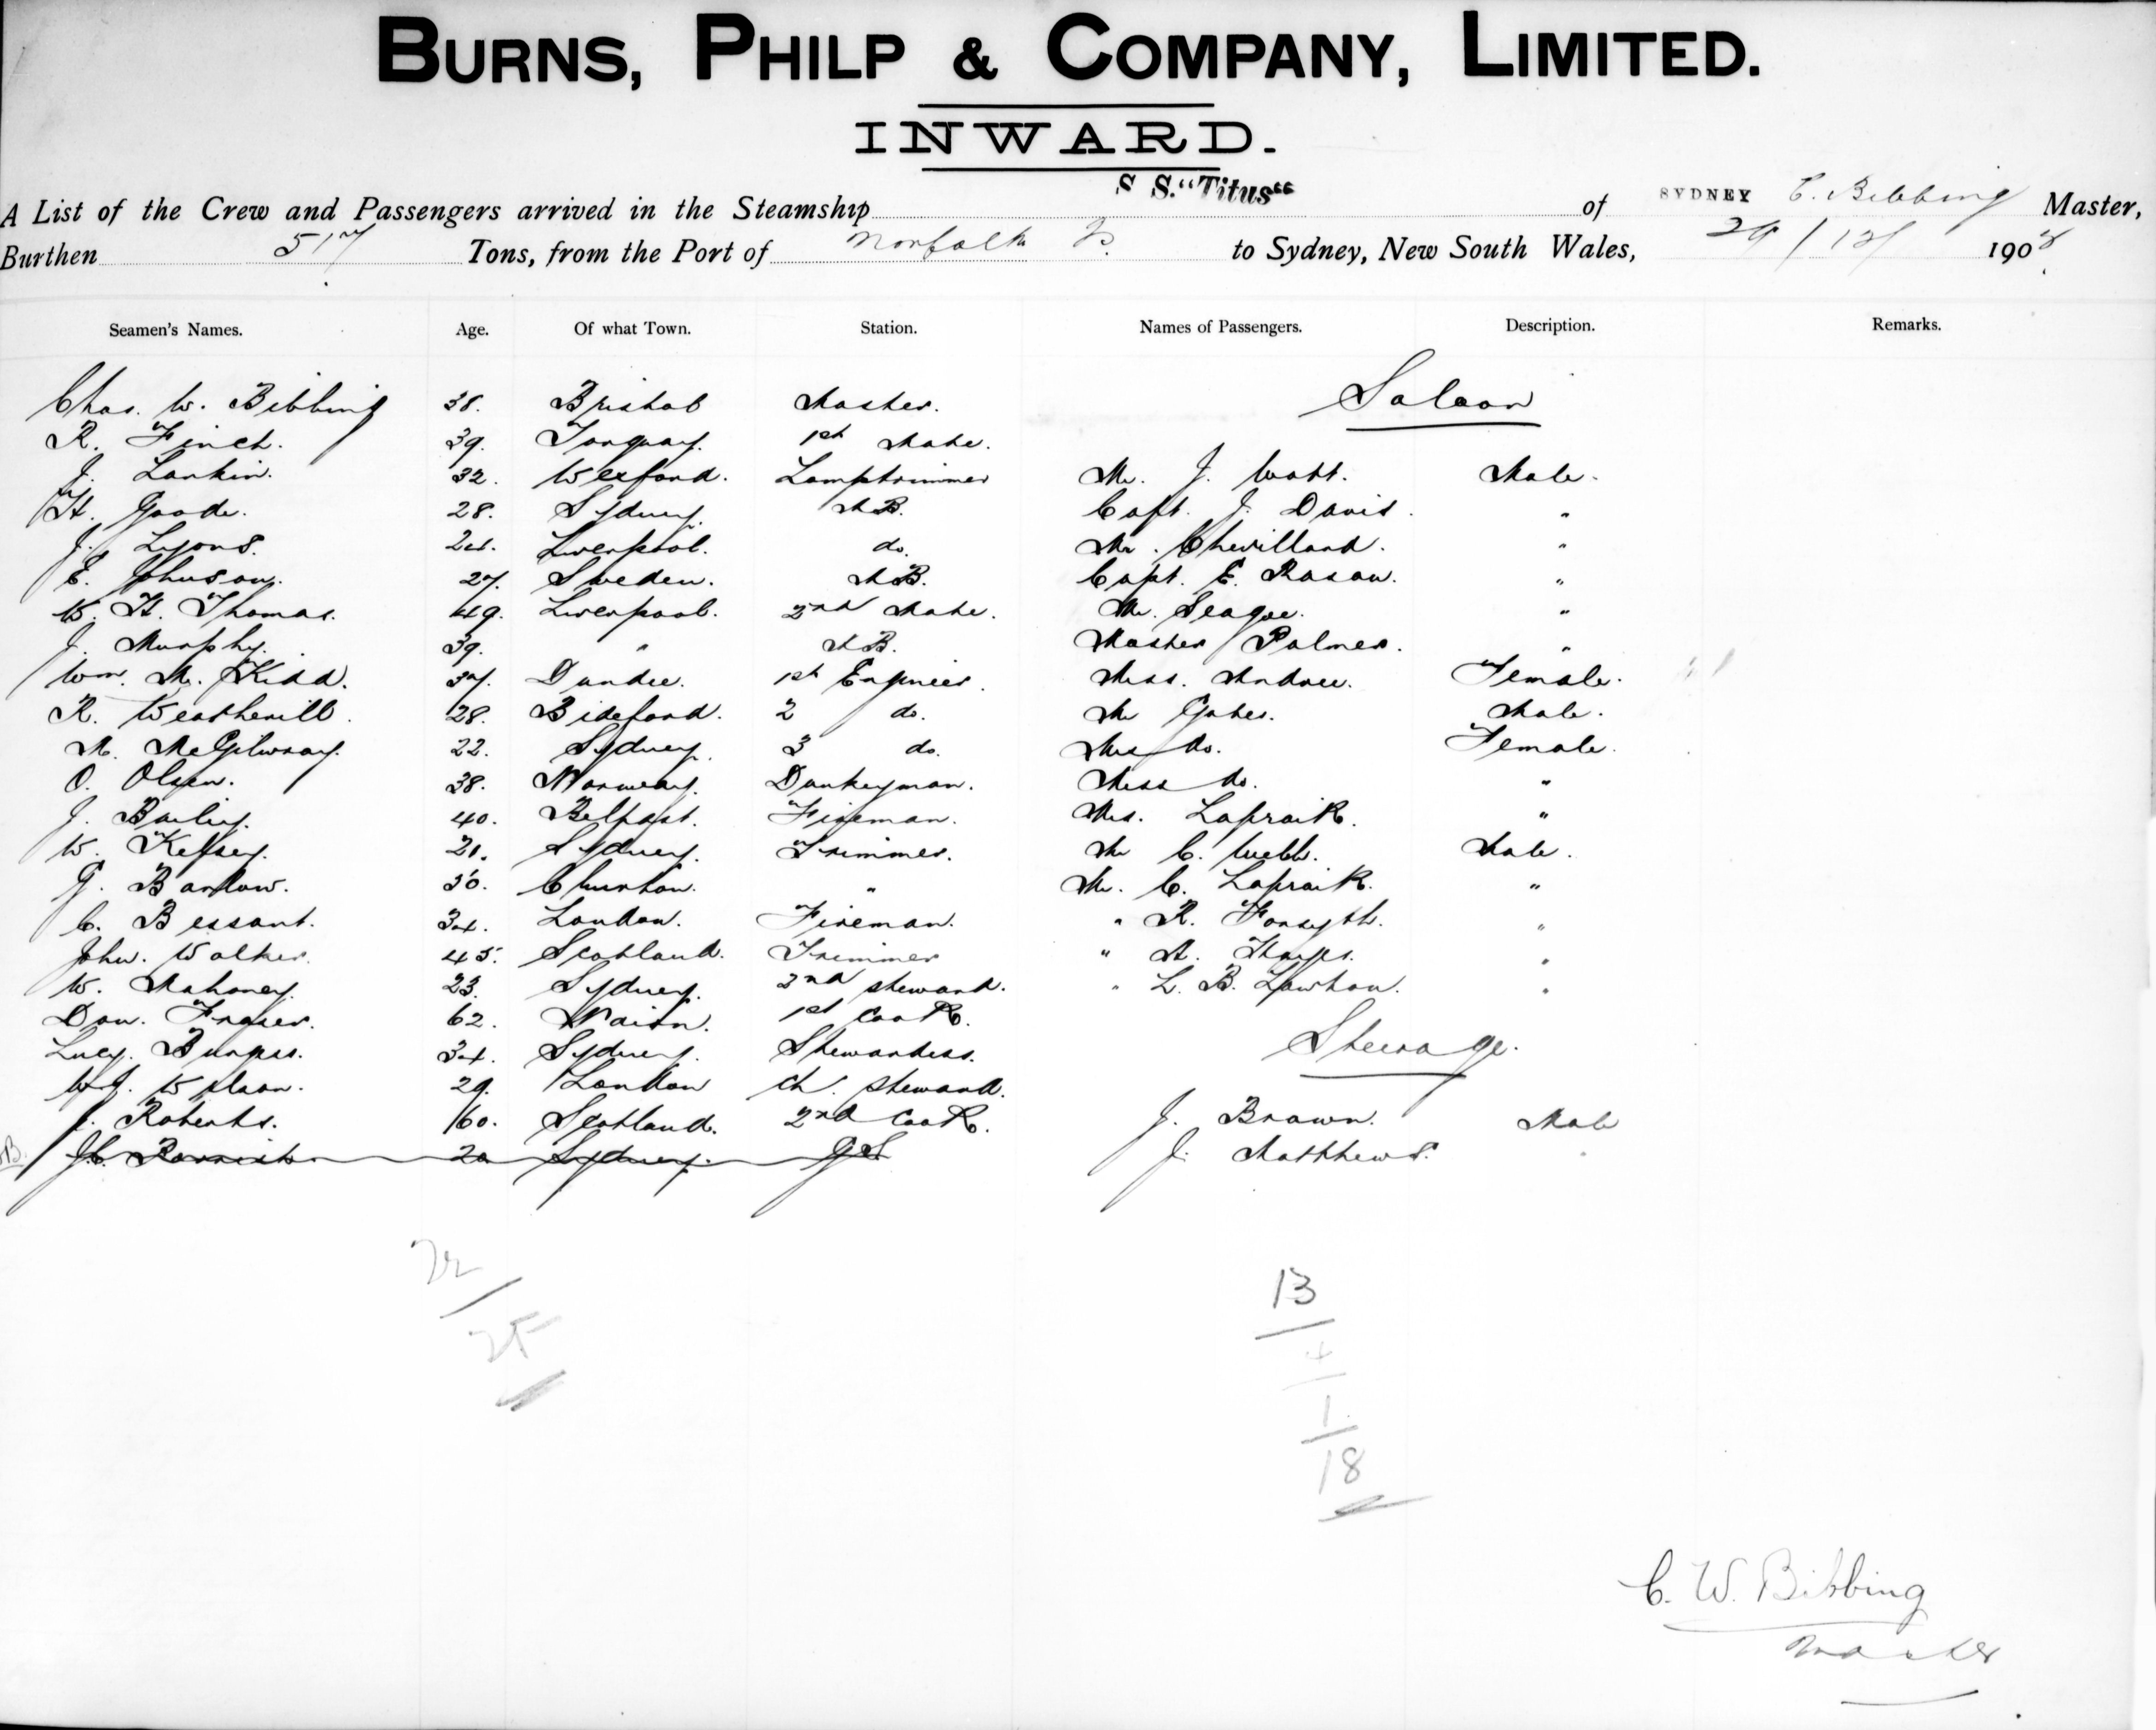 BURNS, PHILP & COMPANY, LIMITED.
INWARD.
A List of the Crew and Passengers arrived in the Steamship S S. "Titus" of SYDNEY C. Bibbing Master,
Burthen 517 Tons, from the Port of Norfolk Is. to Sydney, New South Wales, 29/12/ 1908
Seamen's Names. Age. Of what Town. Station. Names of Passengers. Description. Remarks.
Chas. W. Bibbing 38. Bristol Master. Saloon
R. Finch. 39. Torquay. 1st Mate.
J. Larkin. 32. Wexford. Lamptrimmer Mr. J. Watt. Male.
H. Goode. 28. Sydney. A.B. Capt. J. Davis. "
J. Lyons. 24. Liverpool. do. Mr. Chevilland. "
E. Johnson. 27. Sweden. A.B. Capt. E. Rason. "
W. H. Thomas. 49. Liverpool. 2nd Mate. Mr. Seagoe. "
J. Murphy. 39. " A.B. Master Palmer. "
Wm. M. Kidd. 37. Dundee. 1st Engineer. Miss. Female.
R. Weatherill. 28. Bideford. 2 do. Mr Yates. Male.
M. McGilvray. 22. Sydney. 3 do. Mrs do. Female.
O. Olsen. 38. Norway. Dunkeyman. Miss do. "
J. Bailey. 40. Belfast. Fireman. Mrs. Lapraik. "
W. Kelsey. 21. Sydney. Trimmer. Mr C. Webb. Male.
G. Barlow. 30. Charlton. " Mr. C. Lapraik. "
C. Bessant. 34. London. Fireman. " R. Forsyth. "
John. Walker. 45. Scotland. Trimmer " A. "
W. Mahoney. 23. Sydney. 3nd steward. " L. B. Lawton. "
Don. Fraser. 62. Nairn. 1st Cook.
Lucy. Burgess. 34. Sydney. Stewardess. Steerage.
W.J. Wilson. 29. London ch. steward.
J. Roberts. 60. Scotland. 2nd Cook. J. Brown. Male
20 Sydney. G.S. J. Matthews. "
22
25
13
4
1
18
C. W. Bibbing
Master